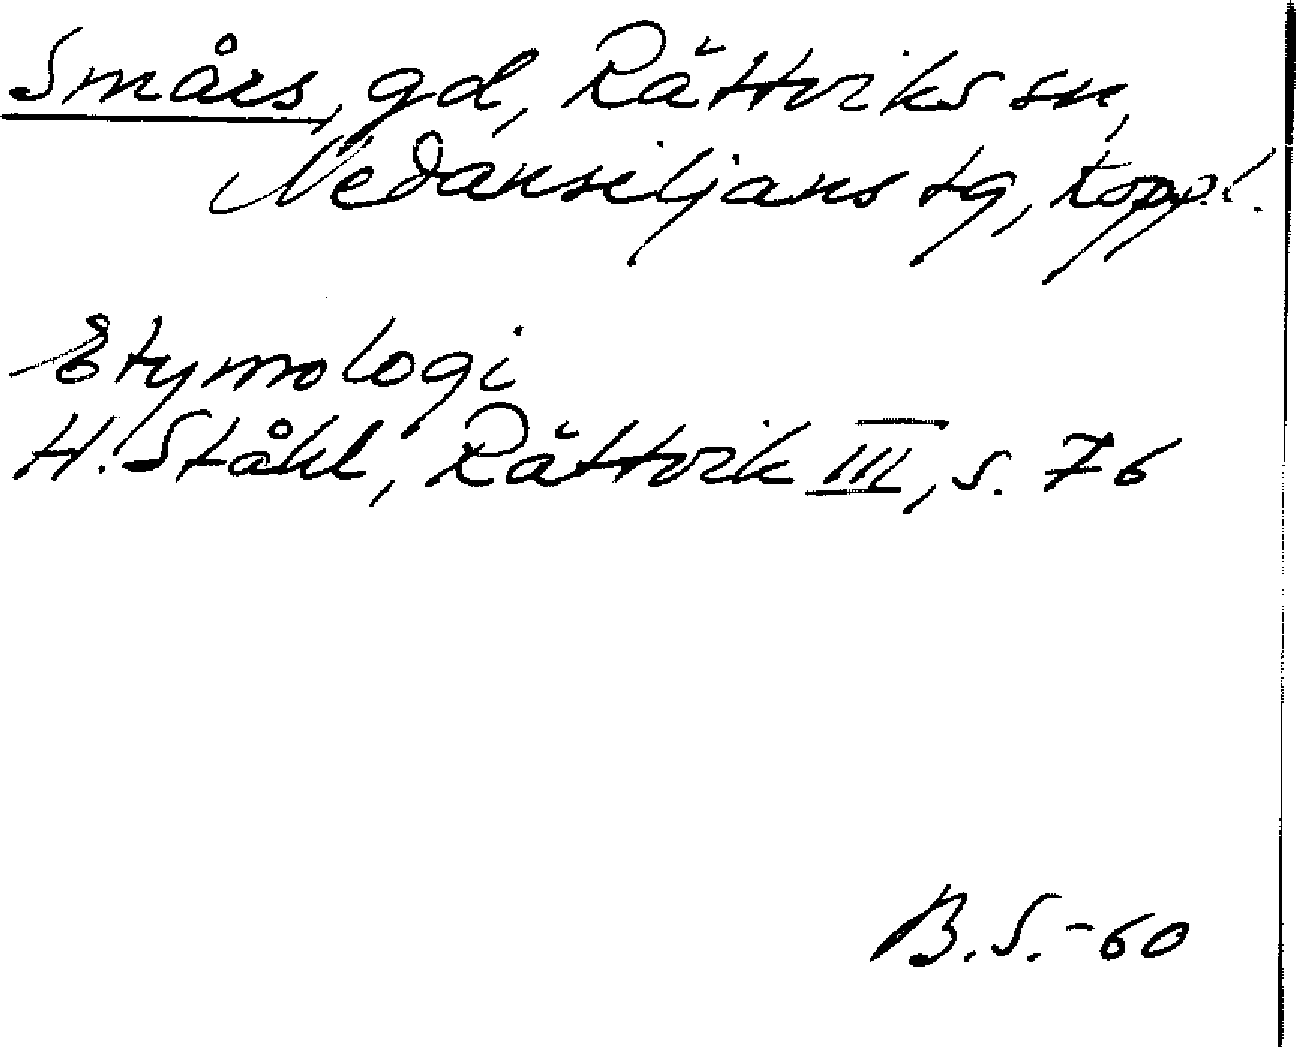 Smårs, gd, Rättviks sn,
Nedansiljans tg, Koppl.
Etymologi
H. Ståhl, Rättvik III, s. 76
B.S.-60